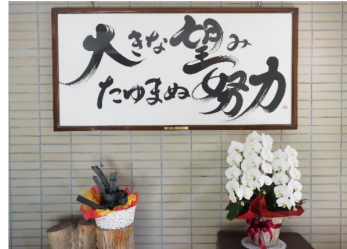 大きな望み
たゆまぬ努力